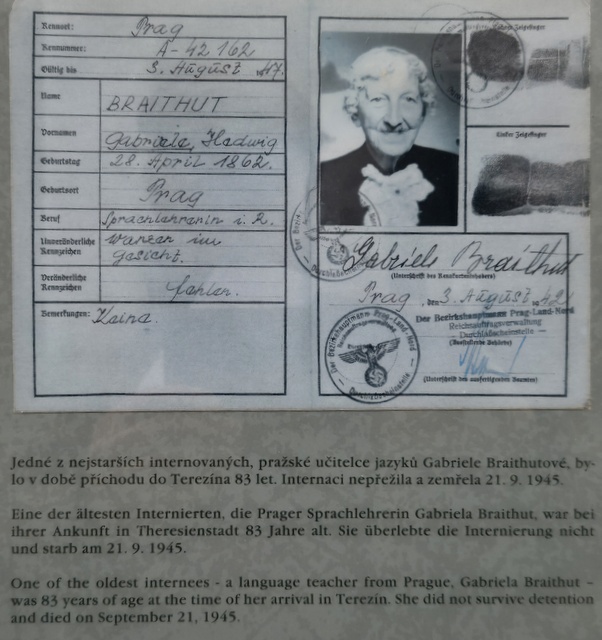 Kennort: Prag
Kennnummer: A-42 162
Gültig bis 3. August 1947.
Name BRAITHUT
Vornamen Gabriele, Hedwig
Geburtstag 28. April 1862.
Geburtsort Prag
Beruf Sprachlehrerin i. R.
Unveränderliche Kennzeichen Warzen im Gesicht.
Veränderliche Kennzeichen fehlen.
Bemerkungen: Keine.
Rechter Zeigefinger
Linker Zeigefinger
Gabriele Braithut
(Unterschrift des Kennkarteninhabers)
Prag, den 3. August 1942
Der Bezirkshauptmann Prag-Land-Nord
Reichsauftragsverwaltung
Durchlaßscheinstelle
(Ausstellende Behörde)
(Unterschrift des ausfertigenden Beamten)
Der Bezirkshauptmann Prag-Land-Nord
Reichsauftragsverwaltung
Durchlaßscheinstelle
Jedné z nejstarších internovaných, pražské učitelce jazyků Gabriele Braithutové, by-
lo v době příchodu do Terezína 83 let. Internaci nepřežila a zemřela 21. 9. 1945.
Eine der ältesten Internierten, die Prager Sprachlehrerin Gabriela Braithut, war bei
ihrer Ankunft in Theresienstadt 83 Jahre alt. Sie überlebte die Internierung nicht
und starb am 21. 9. 1945.
One of the oldest internees - a language teacher from Prague, Gabriela Braithut –
was 83 years of age at the time of her arrival in Terezín. She did not survive detention
and died on September 21, 1945.